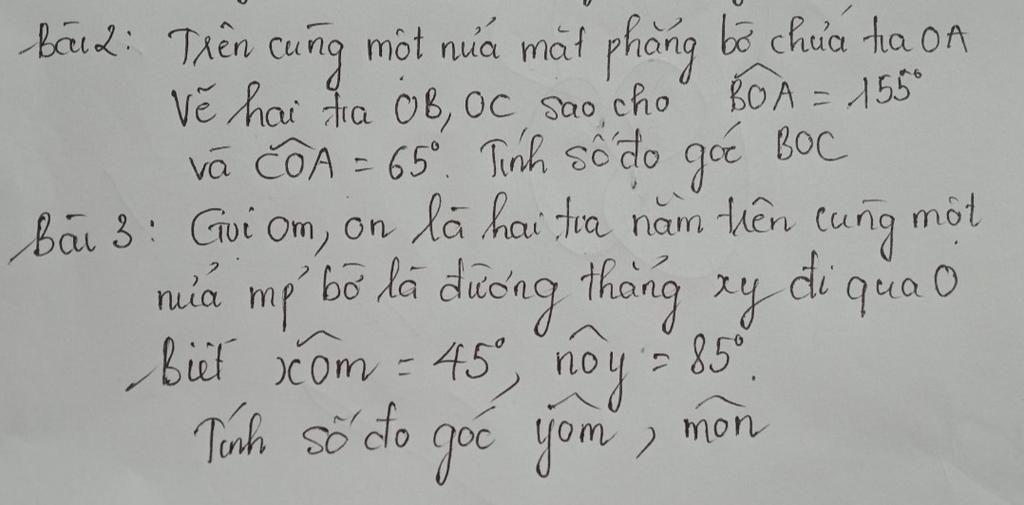 Bài 2: Trên cùng một nửa mặt phẳng bờ chứa tia OA
Vẽ hai tia OB, OC sao cho BOA = 155°
và COA = 65°. Tính số đo góc BOC
Bài 3: Gọi om, on là hai tia nằm trên cùng một
nửa mp bờ là đường thẳng xy đi qua O
Biết xom = 45°, noy = 85°.
Tính số đo góc yom, mon